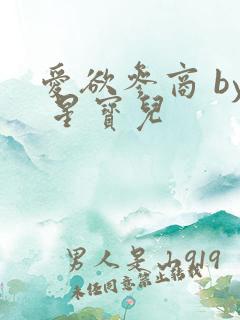 愛欲參商 by
星寶兒
男人是山919
未经同意禁止转载